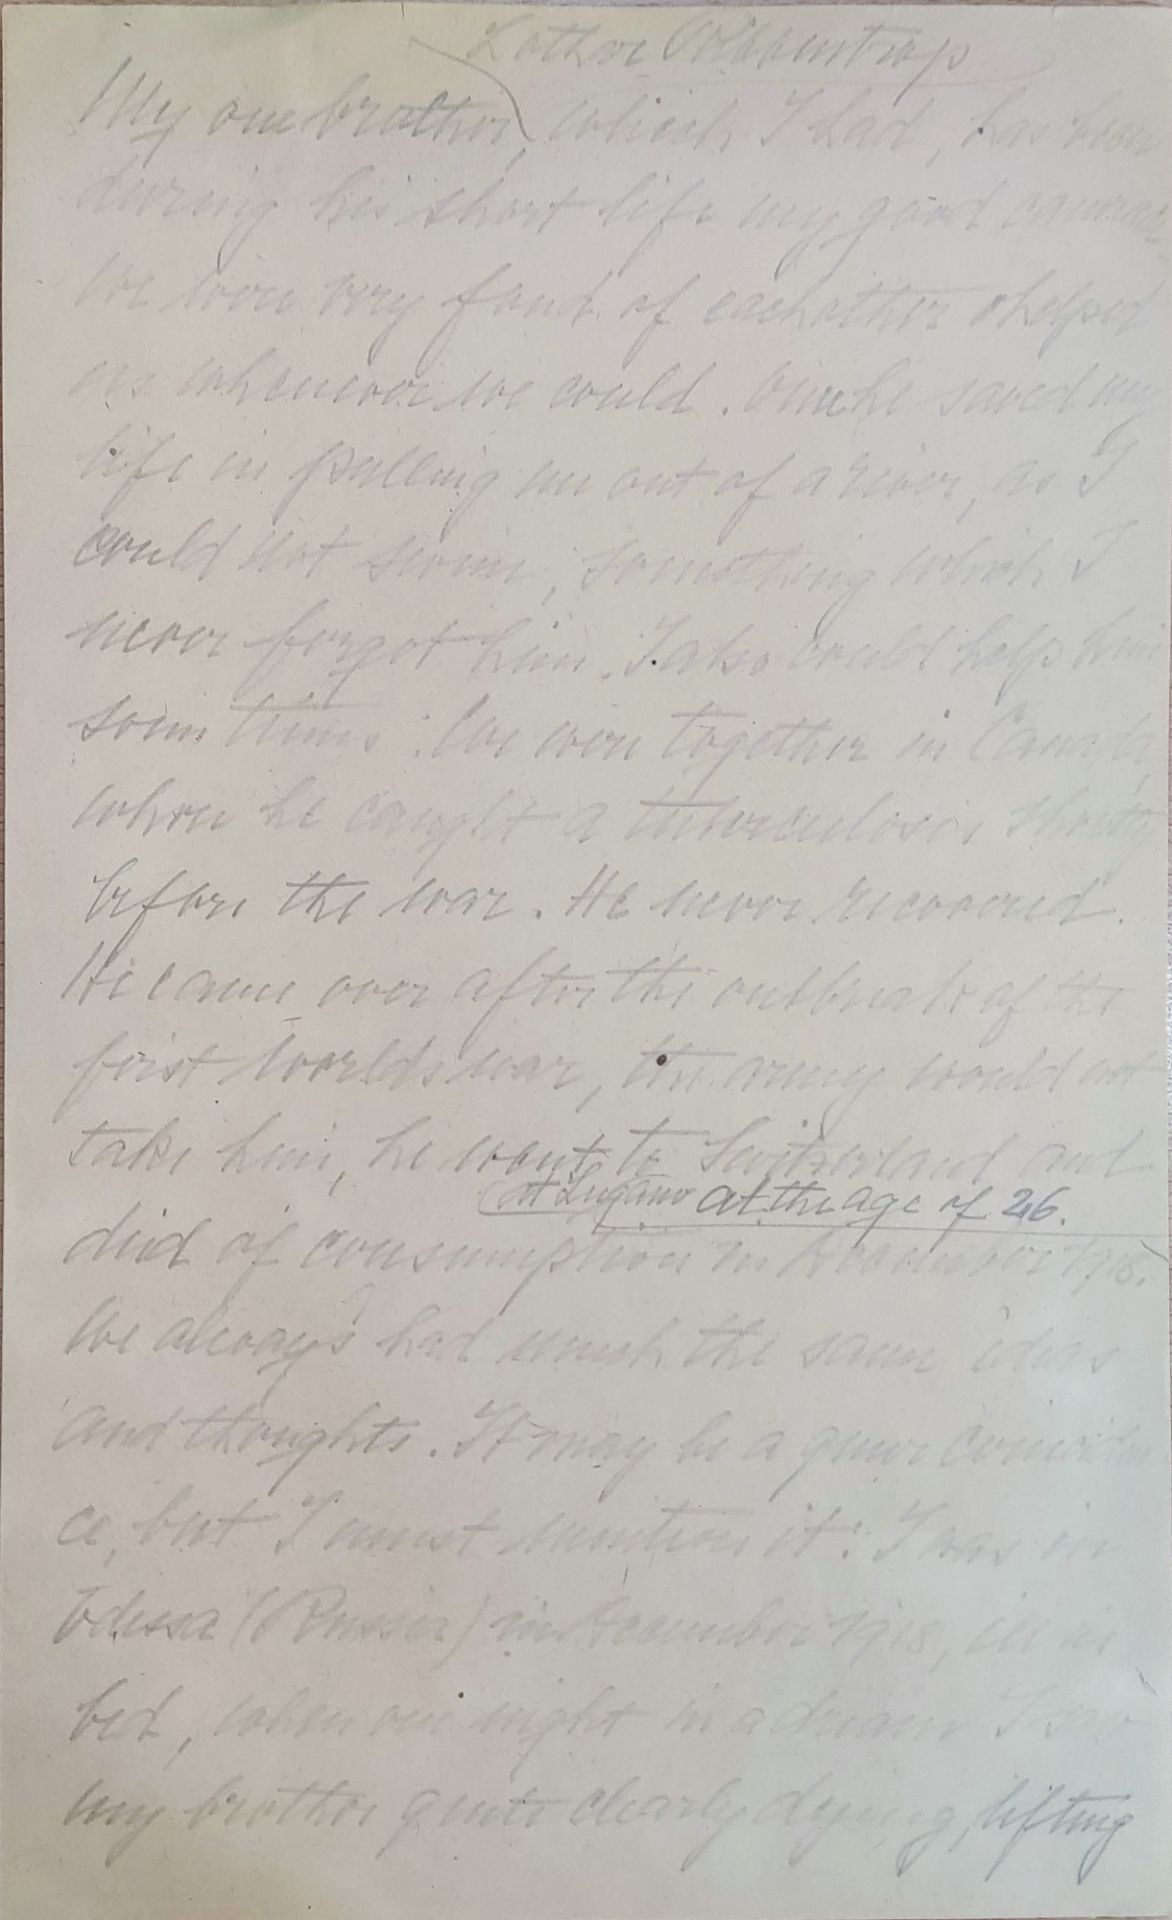 Lothar Ribbentrop
My one brother, which I had, has been
during his short life my good camrade
We were very fond of eachother & helped
us whenever we could. Once he saved my
life in pulling me out of a river, as I
could not swim, something which I
never forgot him. I also could help him
some times. We were together in Canada,
where he caught a tuberculosis shortly
before the war. He never recovered.
He came over after the outbreak of the
first worldswar, the army would not
take him, he went to Switzerland and
at Lugano at the age of 26.
died of consumption in December 1918.
We always had much the same ideas
and thoughts. It may be a queer coinciden
ce, but I must mention it: I was in
Odessa (Russia) in December 1918, ill in
bed, when one night in a dream I saw
my brother quite clearly dying, lifting